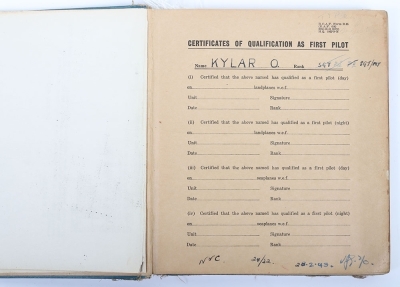 CERTIFICATES OF QUALIFICATION AS FIRST PILOT
Name KYLAR O. Rank
(i) Certified that the above named has qualified as a first pilot (day)
on landplanes w.e.f.
Unit Signature
Date Rank
(ii) Certified that the above named has qualified as a first pilot (night)
on landplanes w.e.f.
Unit Signature
Date Rank
(iii) Certified that the above named has qualified as a first pilot (day)
on seaplanes w.e.f.
Unit Signature
Date Rank
(iv) Certified that the above named has qualified as a first pilot (night)
on seaplanes w.e.f.
Unit Signature
Date Rank